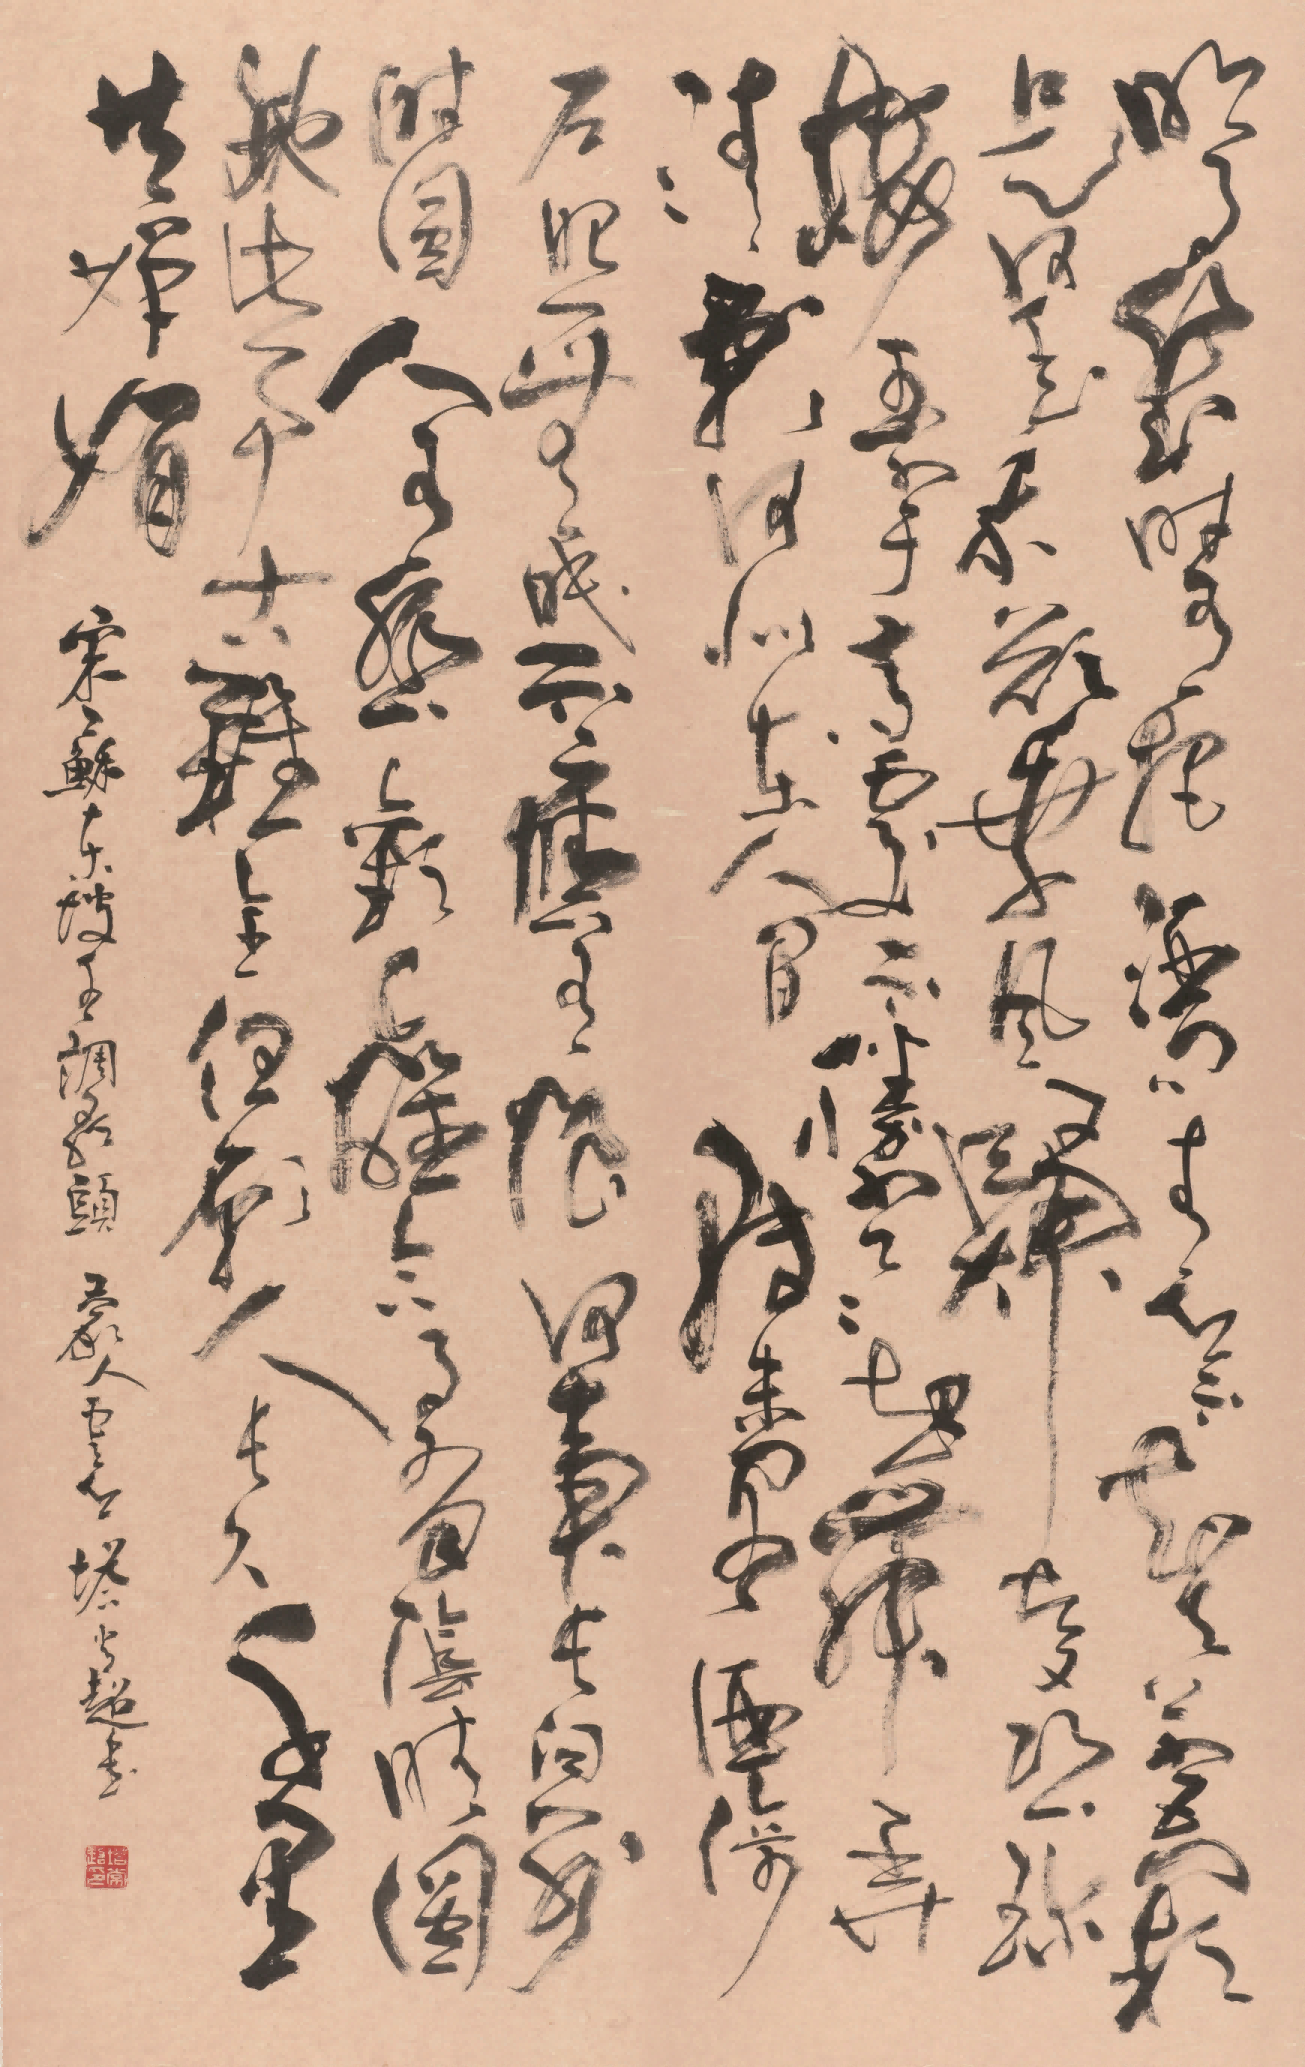 明月幾時有把酒問青天不知天上宮闕
是何年我欲乘風歸去又恐瓊
樓玉宇高處不勝寒起舞弄
清影何似在人間轉朱閣低綺
戶照無眠不應有恨何事長向別
時圓人有悲歡離合月有陰晴圓
缺此事古難全但願人長久千里
共嬋娟
宋蘇東坡水調歌頭 蒙人 塔 超書